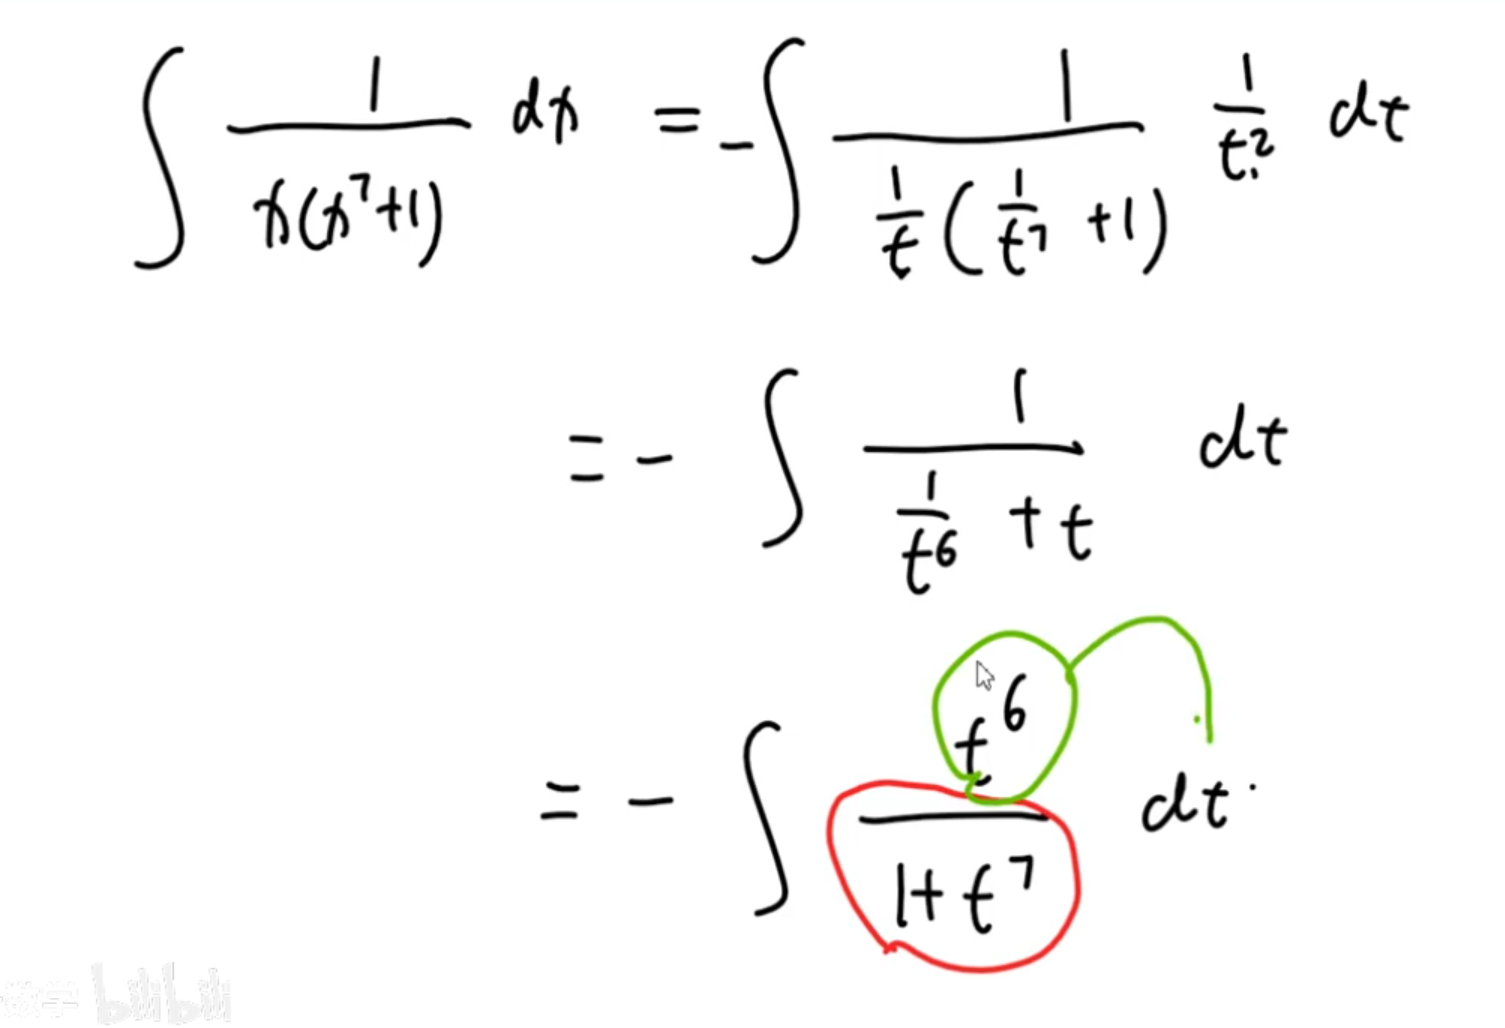 ∫ 1/(x(x⁷+1)) dx = -∫ 1/((1/t)(1/t⁷ +1)) 1/t² dt
= - ∫ 1/(1/t⁶ + t) dt
= - ∫ t⁶/(1+t⁷) dt
数学 bilibili